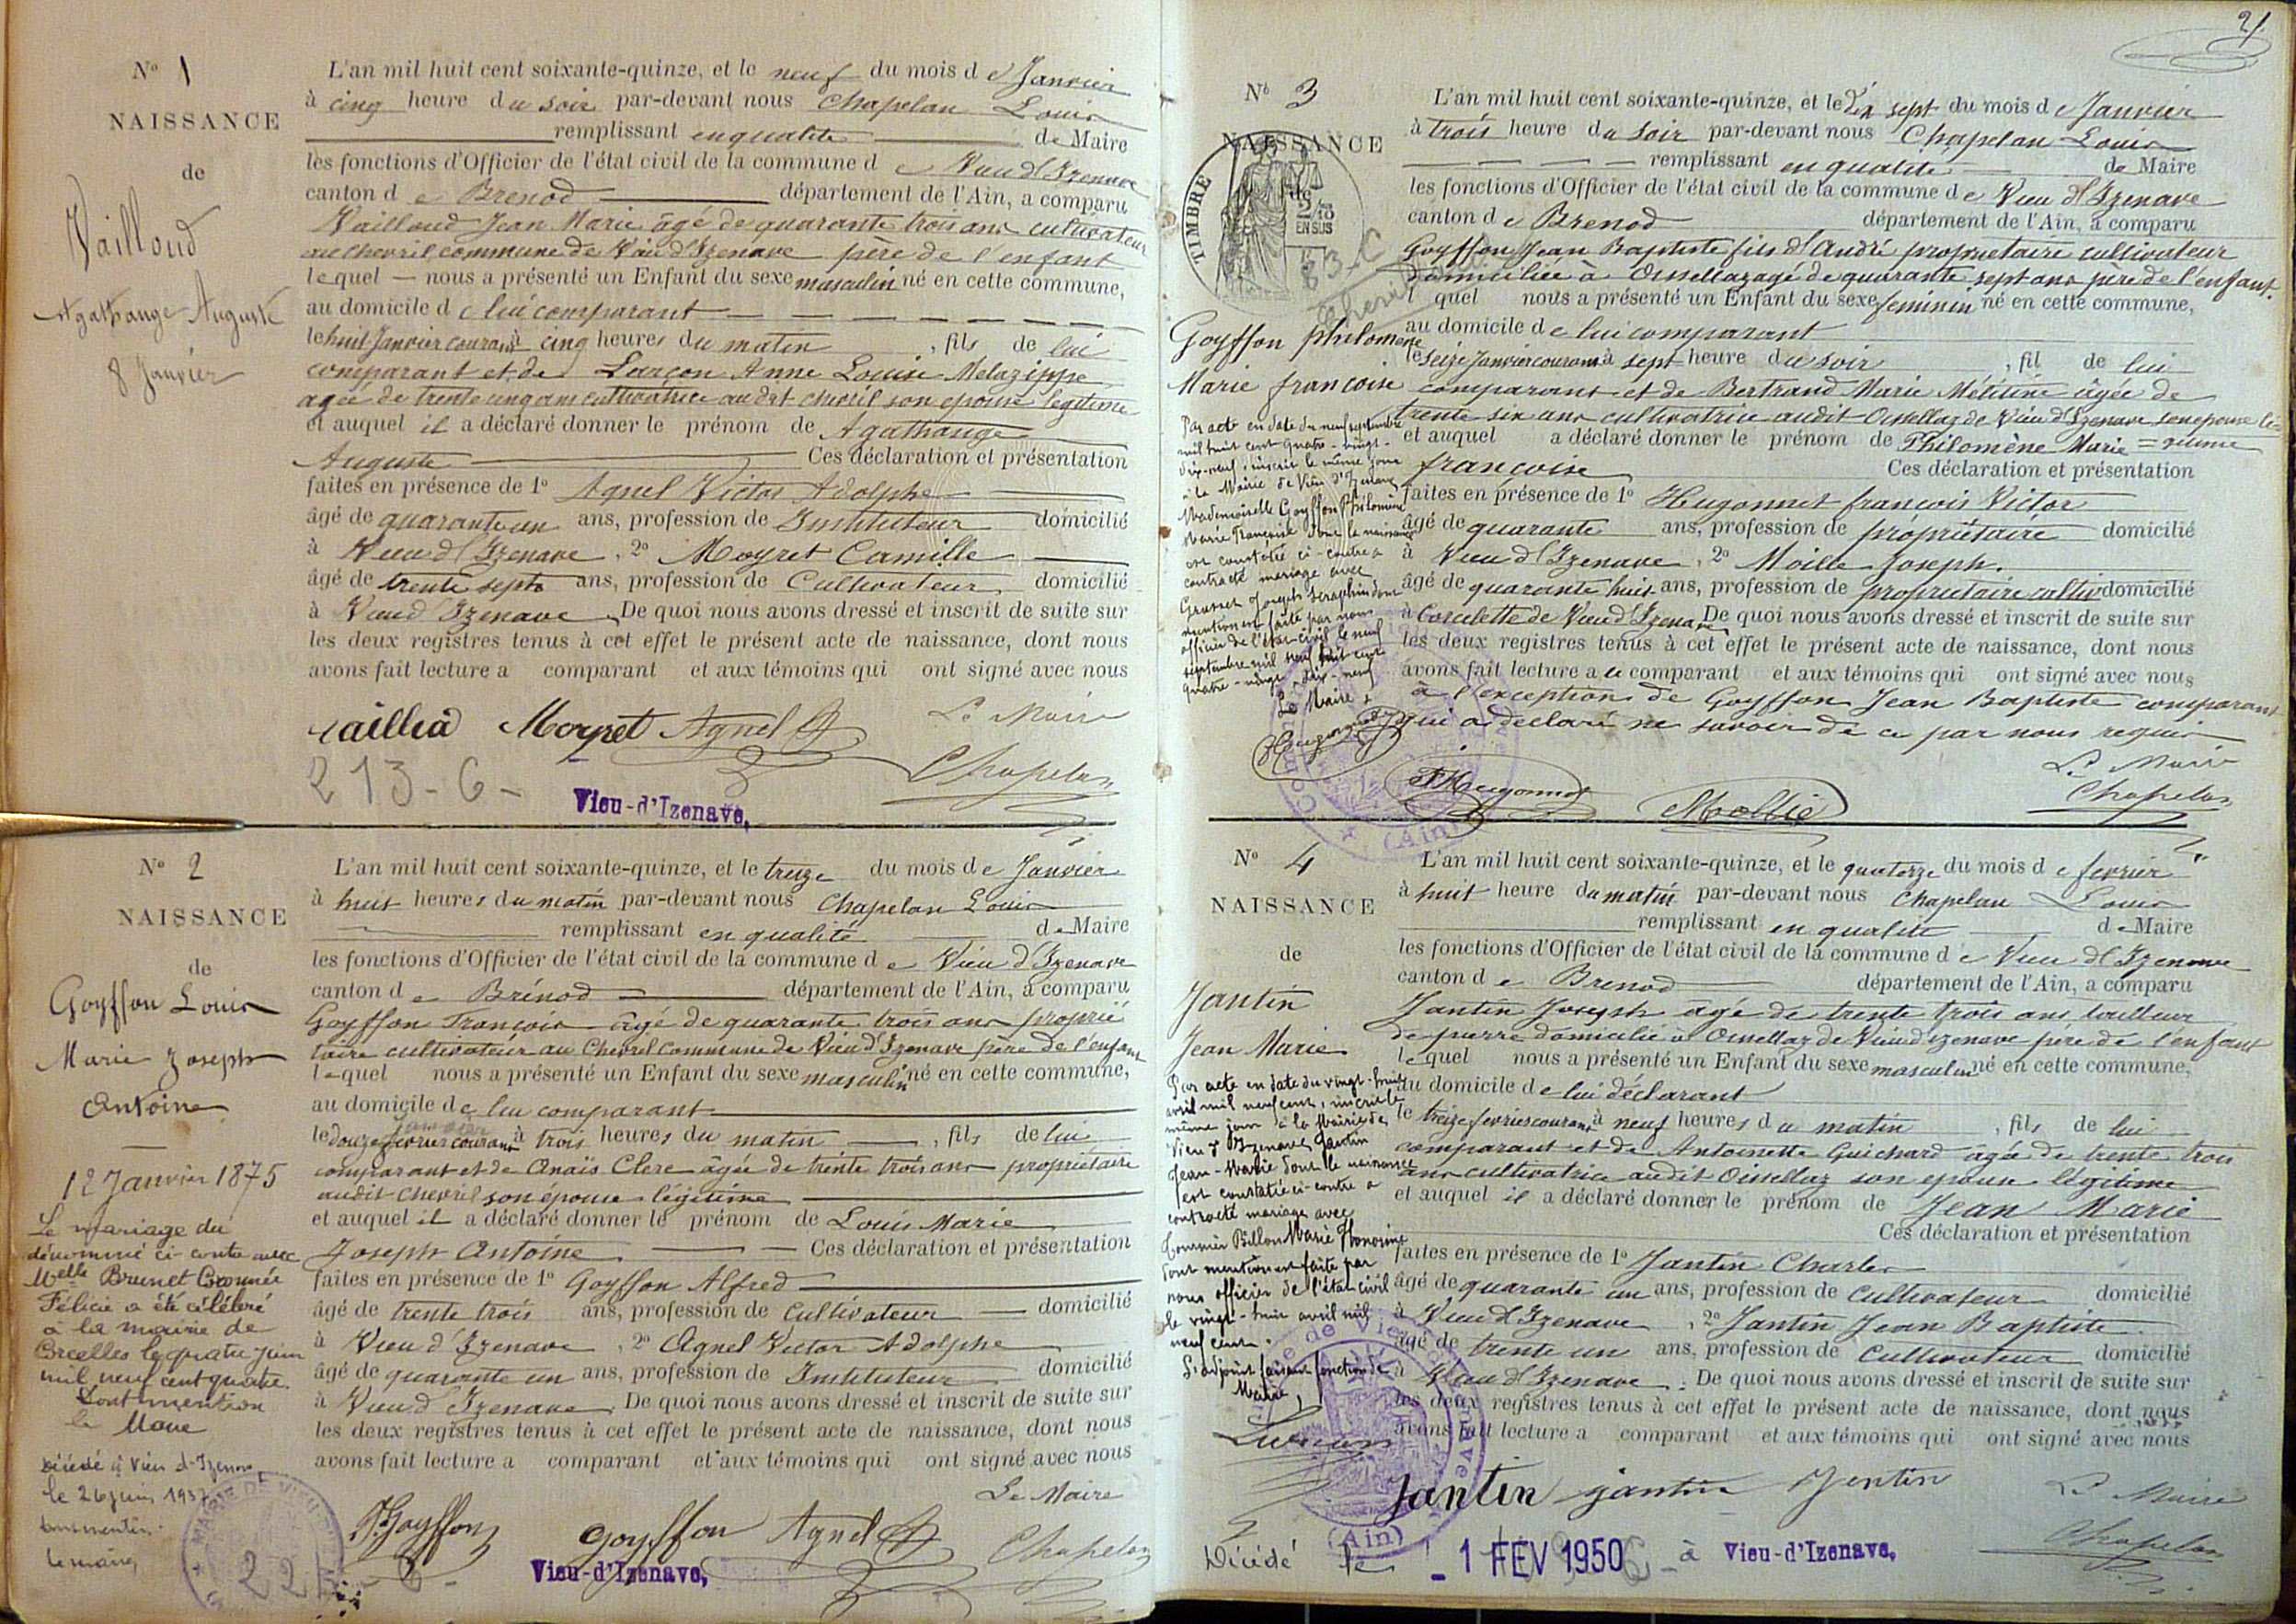 N° 1
NAISSANCE
de
Vailloud
Agathange Auguste
8 Janvier
L'an mil huit cent soixante-quinze, et le neuf du mois de Janvier
à cinq heure du soir par-devant nous Chapelan Louis
remplissant en qualité de Maire
les fonctions d'Officier de l'état civil de la commune de Vieu d'Izenave
canton de Brenod département de l'Ain, a comparu
Vailloud Jean Marie âgé de quarante trois ans cultivateur
au chevril commune de Vieu d'Izenave père de l'enfant
lequel nous a présenté un Enfant du sexe masculin né en cette commune,
au domicile de lui comparant
le huit Janvier courant à cinq heures du matin, fils de lui
comparant et de Lançon Anne Louise Melazippe
agée de trente un ans cultivatrice au dit chevril son épouse légitime
et auquel il a déclaré donner le prénom de Agathange
Auguste Ces déclaration et présentation
faites en présence de 1° Agnel Victor Adolphe
âgé de quarante un ans, profession de Instituteur domicilié
à Vieu d'Izenave, 2° Moyret Camille
âgé de trente sept ans, profession de Cultivateur domicilié
à Vieu d'Izenave. De quoi nous avons dressé et inscrit de suite sur
les deux registres tenus à cet effet le présent acte de naissance, dont nous
avons fait lecture a comparant et aux témoins qui ont signé avec nous
Moyret Agnel Le Maire
Chapelan
213-6-
Vieu-d'Izenave,
N° 2
NAISSANCE
de
Goyffon Louis
Marie Joseph
Antoine
12 Janvier 1875
Le mariage du
dénommé ci-contre avec
Melle Brunet
Félicie a été célébré
à la mairie de
Corcelles le quatre Juin
mil neuf cent quatre.
Dont mention
le Maire
Décédé à Vieu d'Izenave
le 26 juin 1937
Dont mention
le maire,
L'an mil huit cent soixante-quinze, et le treize du mois de Janvier
à huit heures du matin par-devant nous Chapelan Louis
remplissant en qualité de Maire
les fonctions d'Officier de l'état civil de la commune de Vieu d'Izenave
canton de Brénod département de l'Ain, a comparu
Goyffon François âgé de quarante trois ans proprié
taire cultivateur au Chevril commune de Vieu d'Izenave père de l'enfant
lequel nous a présenté un Enfant du sexe masculin né en cette commune,
au domicile de lui comparant
le douze fevrier courant à trois heures du matin, fils de lui
comparant et de Anaïs Clerc âgée de trente trois ans propriétaire
audit chevril son épouse légitime
et auquel il a déclaré donner le prénom de Louis Marie
Joseph Antoine Ces déclaration et présentation
faites en présence de 1° Goyffon Alfred
âgé de trente trois ans, profession de Cultivateur domicilié
à Vieu d'Izenave, 2° Agnel Victor Adolphe
âgé de quarante un ans, profession de Instituteur domicilié
à Vieu d'Izenave. De quoi nous avons dressé et inscrit de suite sur
les deux registres tenus à cet effet le présent acte de naissance, dont nous
avons fait lecture a comparant et aux témoins qui ont signé avec nous
Le Maire
Goyffon Goyffon Agnel Chapelan
Vieu-d'Izenave,
21
N° 3
NAISSANCE
de
TIMBRE
EN SUS
Goyffon Philomene
Marie francoise
Par acte en date du neuf septembre
mil huit cent quatre-vingt-
dix-neuf, inscrit le même jour
à la Mairie de Vieu d'Izenave
Mademoiselle Goyffon Philomène
Marie Françoise dont la naissance
est constatée ci-contre a
contracté mariage avec
Grasset Joseph Séraphin dont
mention est faite par nous
officier de l'état-civil le neuf
septembre mil huit cent
quatre-vingt-dix-neuf
Le Maire,
L'an mil huit cent soixante-quinze, et le dix sept du mois de Janvier
à trois heure du soir par-devant nous Chapelan Louis
remplissant en qualité de Maire
les fonctions d'Officier de l'état civil de la commune de Vieu d'Izenave
canton de Brenod département de l'Ain, a comparu
Goyffon Jean Baptiste fils d'André propriétaire cultivateur
domiciliée à Oisellaz agé de quarante sept ans père de l'enfant.
l quel nous a présenté un Enfant du sexe feminin né en cette commune,
au domicile de lui comparant
le seize Janvier courant à sept heure du soir, fil de lui
comparant et de Bertrand Marie Mélitine âgée de
trente six ans cultivatrice audit Oisellaz de Vieu d'Izenave son epouse lé=
et auquel a déclaré donner le prénom de Philomène Marie =gitime
francoise Ces déclaration et présentation
faites en présence de 1° Hugonnet francois Victor
âgé de quarante ans, profession de propriétaire domicilié
à Vieu d'Izenave, 2° Moille Joseph.
âgé de quarante huit ans, profession de propriétaire cultiv domicilié
à Corcelette de Vieu d'Izenave De quoi nous avons dressé et inscrit de suite sur
les deux registres tenus à cet effet le présent acte de naissance, dont nous
avons fait lecture a le comparant et aux témoins qui ont signé avec nous
à l'exception de Goyffon Jean Baptiste comparant
qui a declaré ne savoir de ce par nous requis
Le Maire
Hugonnet Chapelan
(Ain)
N° 4
NAISSANCE
de
Jantin
Jean Marie
Par acte en date du vingt-huit
avril mil neuf cent, inscrit le
même jour à la Mairie de
Vieu d'Izenave, Jantin
Jean-Marie dont la naissance
est constatée ci-contre a
contracté mariage avec
Marie Honorine
dont mention est faite par
nous officier de l'état civil
le vingt-huit avril mil
neuf cent.
L'adjoint faisant fonction de
Maire,
L'an mil huit cent soixante-quinze, et le quatorze du mois de fevrier
à huit heure du matin par-devant nous Chapelan Louis
remplissant en qualité de Maire
les fonctions d'Officier de l'état civil de la commune de Vieu d'Izenave
canton de Brenod département de l'Ain, a comparu
Jantin Joseph agé de trente trois ans tailleur
de pierre domicilié à Oisellaz de Vieu d'Izenave père de l'enfant
lequel nous a présenté un Enfant du sexe masculin né en cette commune,
au domicile de lui déclarant
le treize fevrier courant à neuf heures du matin, fils de lui
comparant et de Antoinette Guichard agée de trente trois
ans cultivatrice audit Oisellaz son epouse légitime
et auquel il a déclaré donner le prénom de Jean Marie
Ces déclaration et présentation
faites en présence de 1° Jantin Charles
âgé de quarante un ans, profession de Cultivateur domicilié
à Vieu d'Izenave, 2° Jantin Jean Baptiste
âgé de trente un ans, profession de Cultivateur domicilié
à Vieu d'Izenave. De quoi nous avons dressé et inscrit de suite sur
les deux registres tenus à cet effet le présent acte de naissance, dont nous
avons fait lecture a comparant et aux témoins qui ont signé avec nous
Jantin jantin Jentin Le Maire
Chapelan
(Ain)
Décédé le - 1 FEV 1950 à Vieu-d'Izenave,